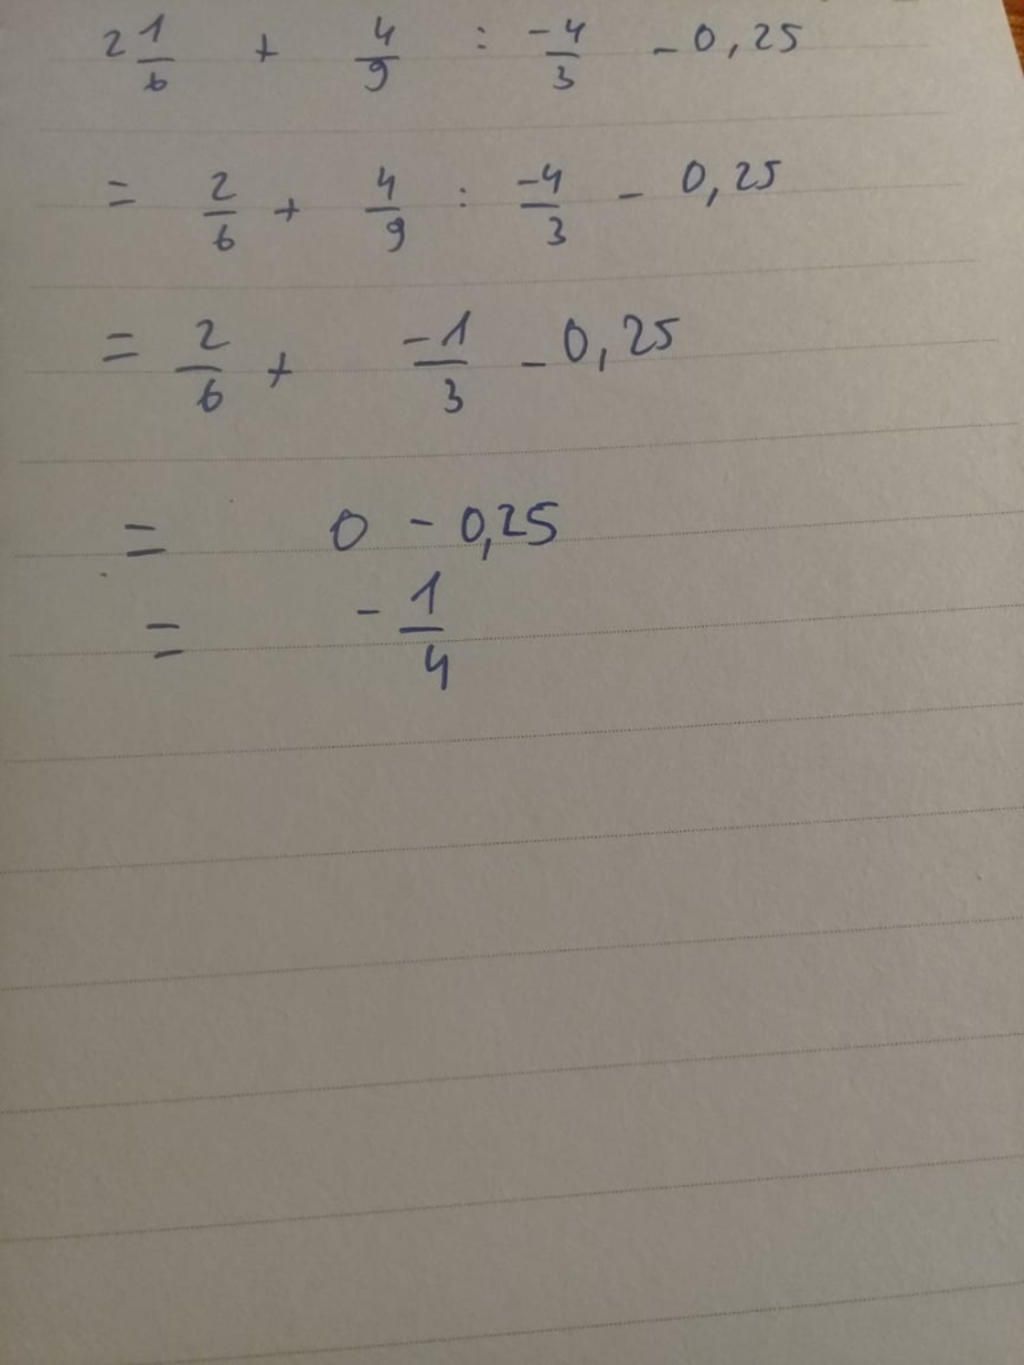 2 1/6 + 4/9 : -4/3 - 0,25
= 2/6 + 4/9 : -4/3 - 0,25
= 2/6 + -1/3 - 0,25
= 0 - 0,25
= - 1/4